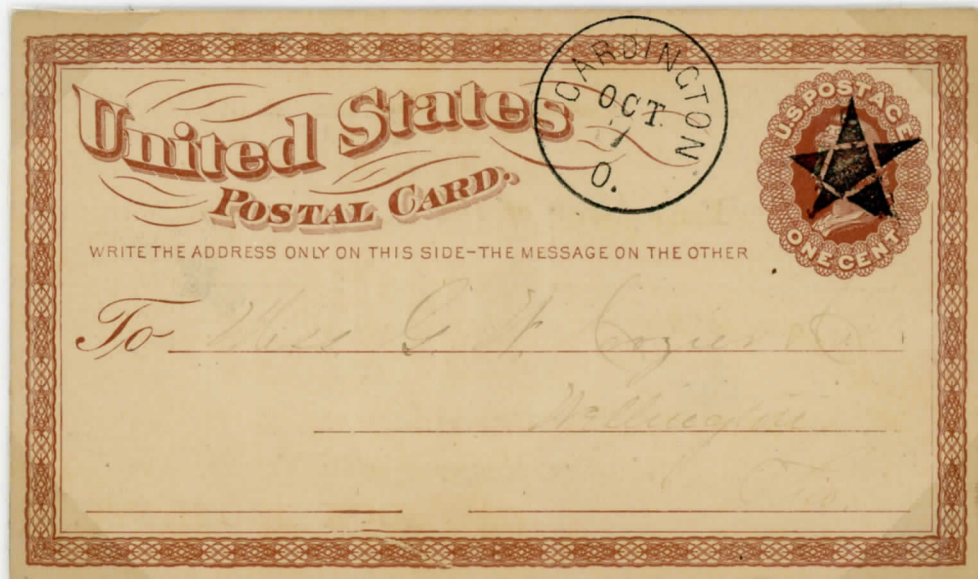 United States
POSTAL CARD.
CARDINGTON
OCT.
1
O.
U.S. POSTAGE
ONE CENT
WRITE THE ADDRESS ONLY ON THIS SIDE–THE MESSAGE ON THE OTHER
To G. W. Crozier
Wellington